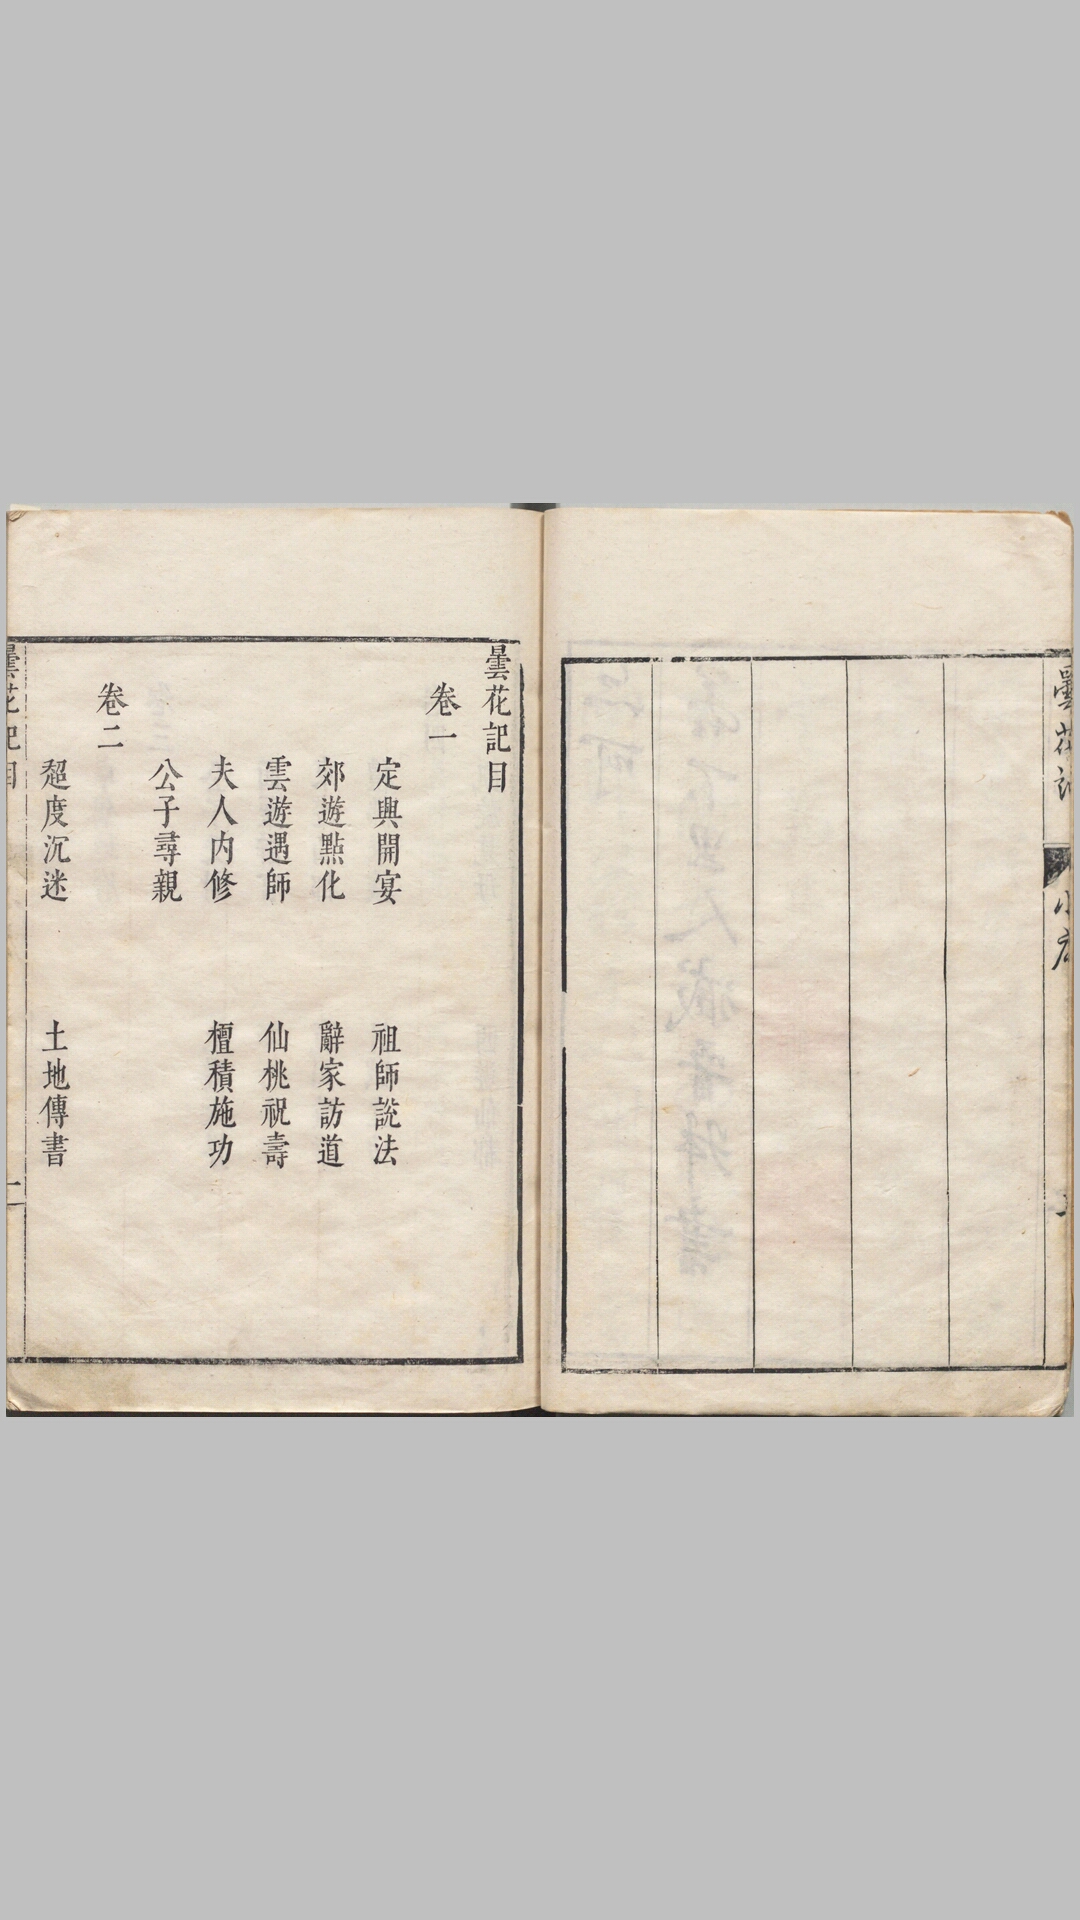 曇花記
小序
曇花記目
卷一
定興開宴 祖師說法
郊遊點化 辭家訪道
雲遊遇師 仙桃祝壽
夫人内修 檀積施功
公子尋親
卷二
超度沉迷 土地傳書
曇花記目
一